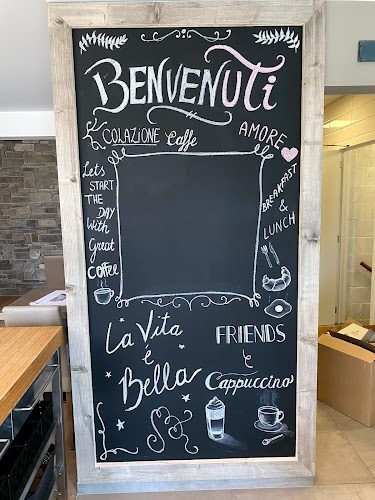 BENVENUTI
COLAZIONE Caffe
AMORE
Lets
START
THE
DAY
With
Great
Coffee
BREAKFAST
&
LUNCH
La Vita
è
Bella
FRIENDS
e
Cappuccino